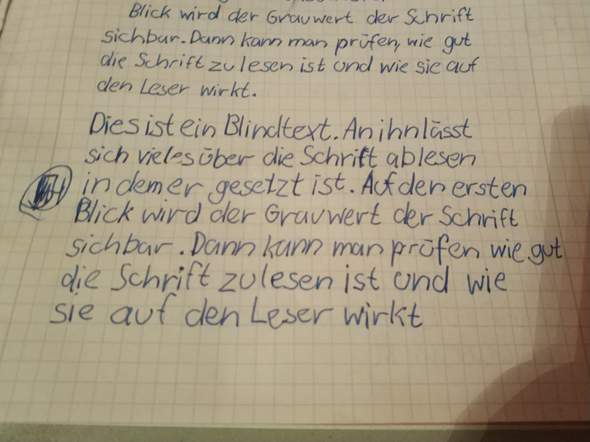 Blick wird der Grauwert der Schrift
sichbar. Dann kann man prüfen, wie gut
die Schrift zu lesen ist und wie sie auf
den Leser wirkt.
Dies ist ein Blindtext. An ihn lässt
sich vieles über die Schrift ablesen
in dem er gesetzt ist. Auf den ersten
Blick wird der Grauwert der Schrift
sichbar. Dann kann man prüfen wie gut
die Schrift zu lesen ist und wie
sie auf den Leser wirkt